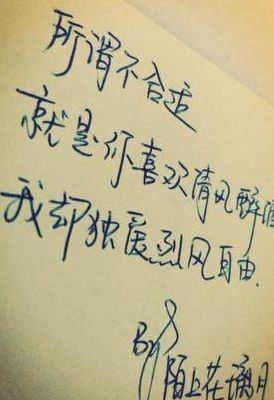 所谓不合适
就是你喜欢清风醉酒
我却独爱烈风自由.
By
陌上花璃月